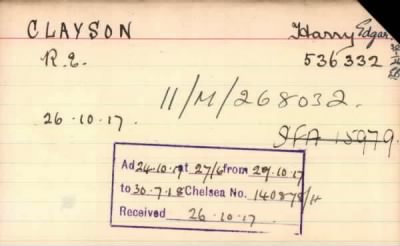 CLAYSON Harry Edgar
R.E. 536332
11/M/268032.
26.10.17.
SFA 15979.
Ad 24.10.17 at 27/6 from 29.10.17
to 30.7.18 Chelsea No. 140878/H
Received 26.10.17.